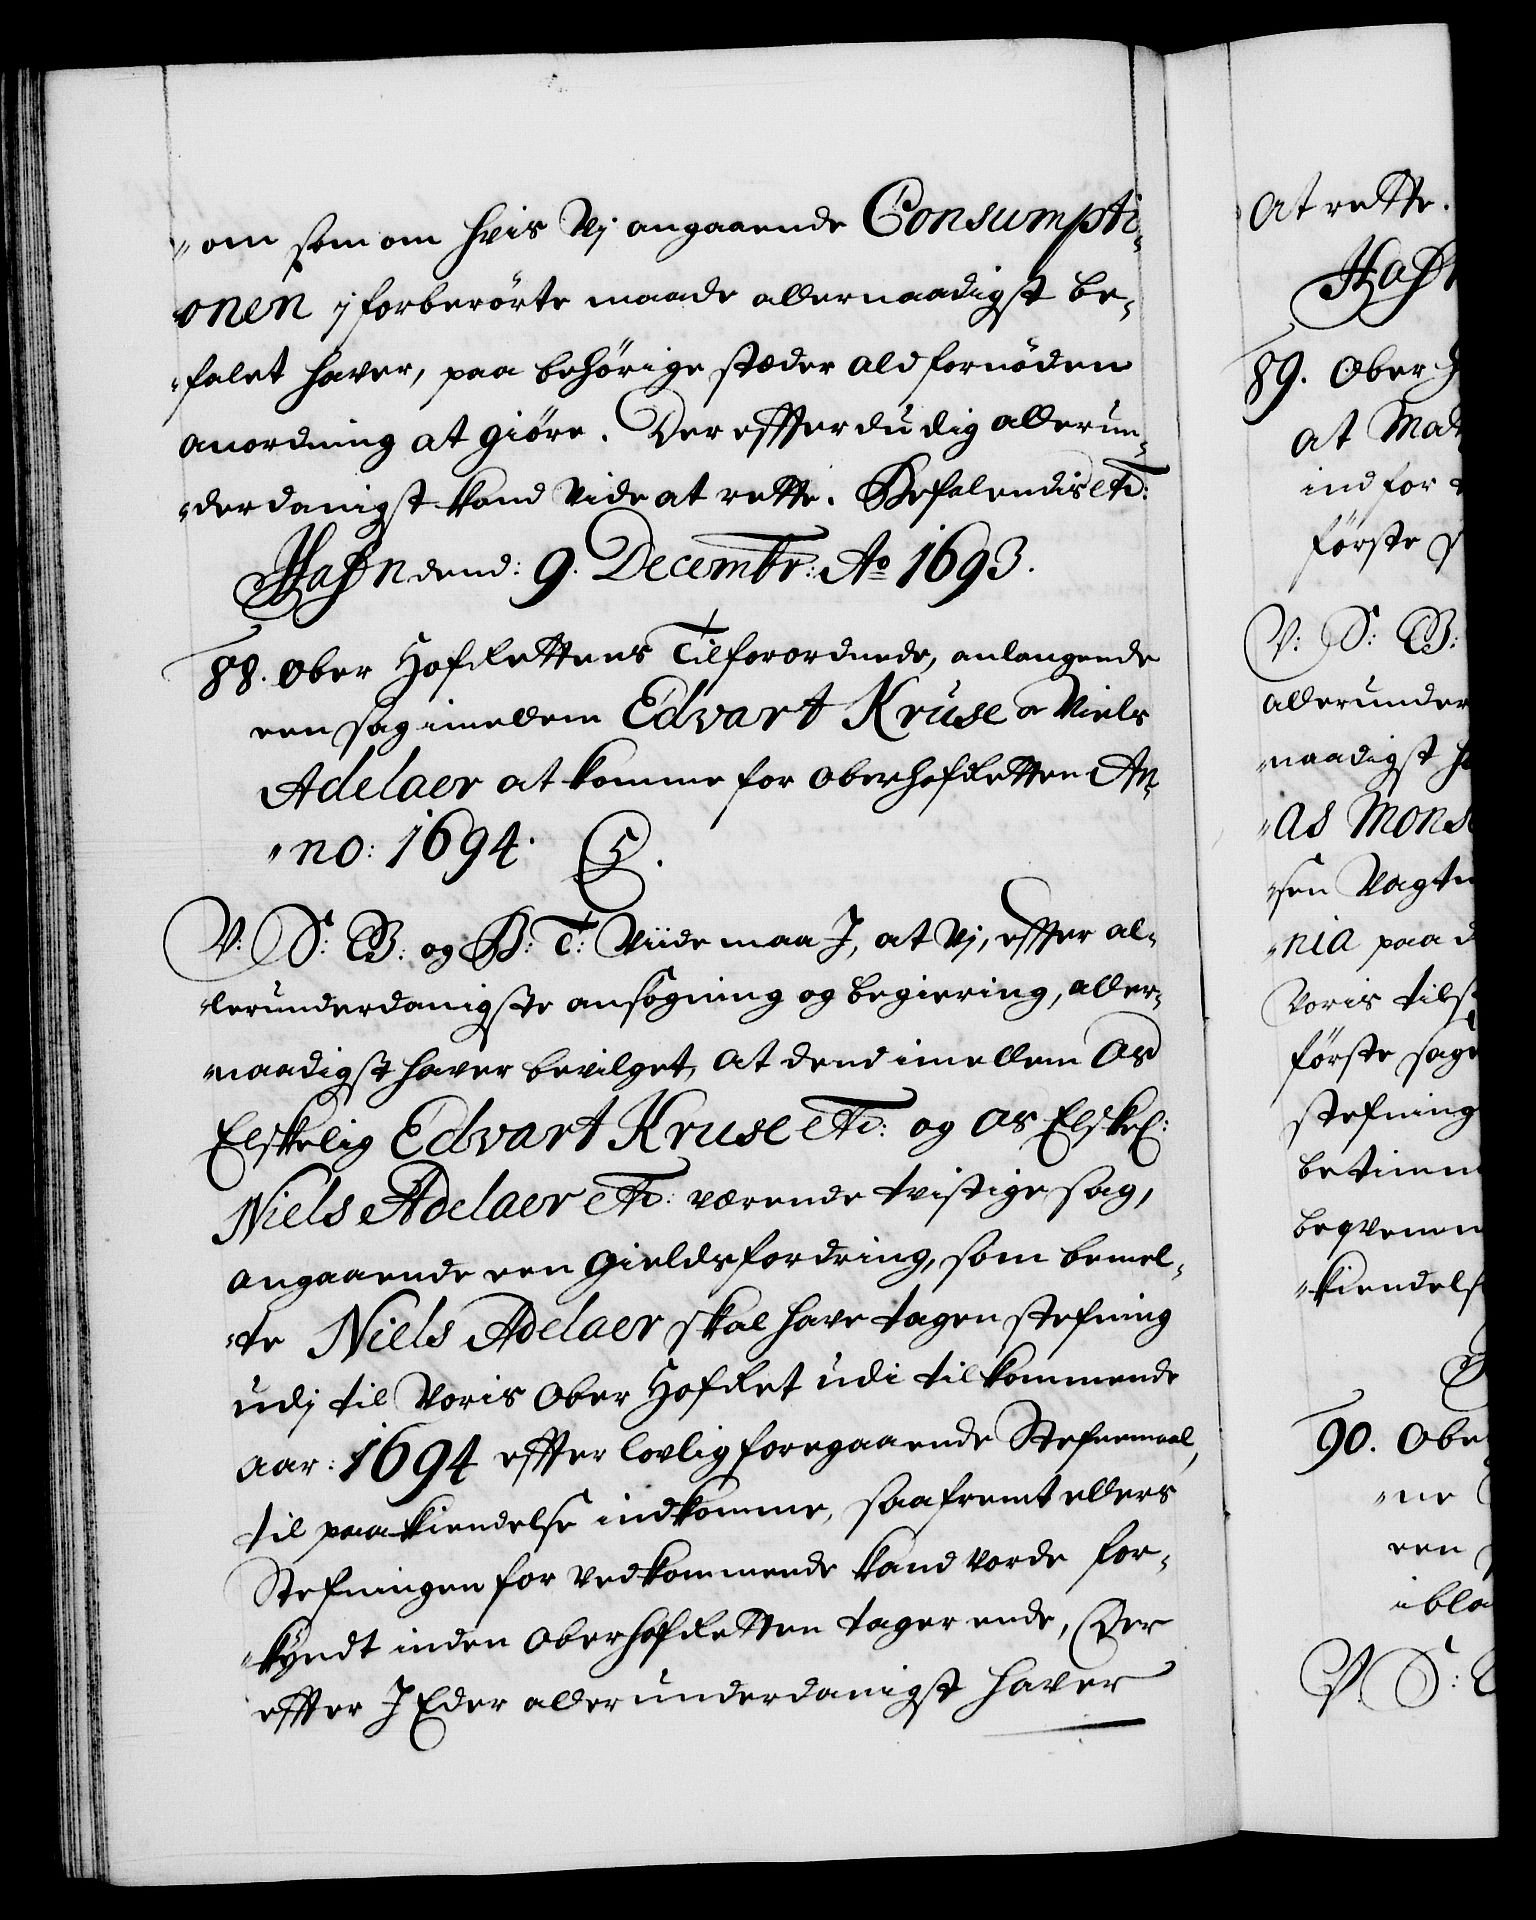 "om som om hvis Vj angaaende Consumpti-
onen j forberørte maade allernaadigst be-
"falet hafver, paa behørige stæder ald fornøden
anordning at giøre. Der effter du dig allerun-
"derdanigst kand vide at rette. Befalendis etc:
Hafn dend: 9. Decembr: Ao 1693.
88. Ober HofRettens Tilforordnede, anlangende
een sag imellem Edvart Kruse o Niels
Adelaer at komme for OberhofRetten An-
"no: 1694. C5.
V: S: G: og B: T: Viide maa J, at Vj, effter al-
lerunderdanigste ansøgning og begiering, aller-
naadigst hafver bevilget, at dend imellem Os
Elskelig Edvart Kruse etc: og Os Elskel:
Niels Adelaer etc: værende tvistige sag,
angaaende een Gieldsfordring, som bemel-
"te Niels Adelaer skal have tagen stefning
udj til Voris Ober HofRet udi tilkommende
aar: 1694 effter lovlig foregaaende Stefnemaal,
til paakiendelse indkomme, saafremt ellers
Stefningen for vedkommende kand vorde for-
"kyndt inden OberhofRetten tager ende, Der
effter J Eder allerunderdanigst hafver
at rette.
Hafn
89. Ober H
at Mad
ind for
første s
V: S: G:
allerunder
naadigst ha
"as Mons
"sen Vagtm
"nia paa d
Voris tils
første sage
stefning
betimm
beqvemm
"kiendels
90. Obe
"ne
een
ibla
V: S: G